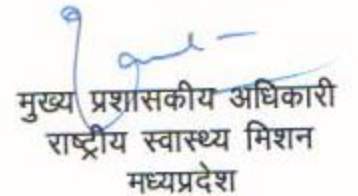 मुख्य प्रशासकीय अधिकारी
राष्ट्रीय स्वास्थ्य मिशन
मध्यप्रदेश